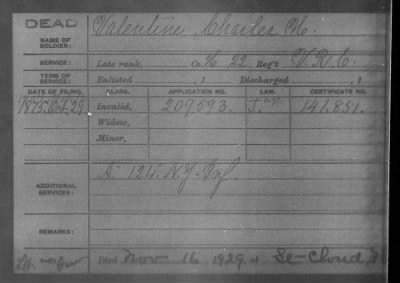 DEAD
NAME OF SOLDIER:
Valentine, Charles M.
SERVICE:
Late rank, Co. H 22 Reg't V.R.C.
TERM OF SERVICE:
Enlisted , 1 Discharged , 1
DATE OF FILING. CLASS. APPLICATION NO. LAW. CERTIFICATE NO.
1875. Oct. 29 Invalid, 209593. 141.851.
Widow,
Minor,
ADDITIONAL SERVICES:
A. 124. N.Y. Inf
REMARKS:
Died Nov 16 1929, at St-Cloud,